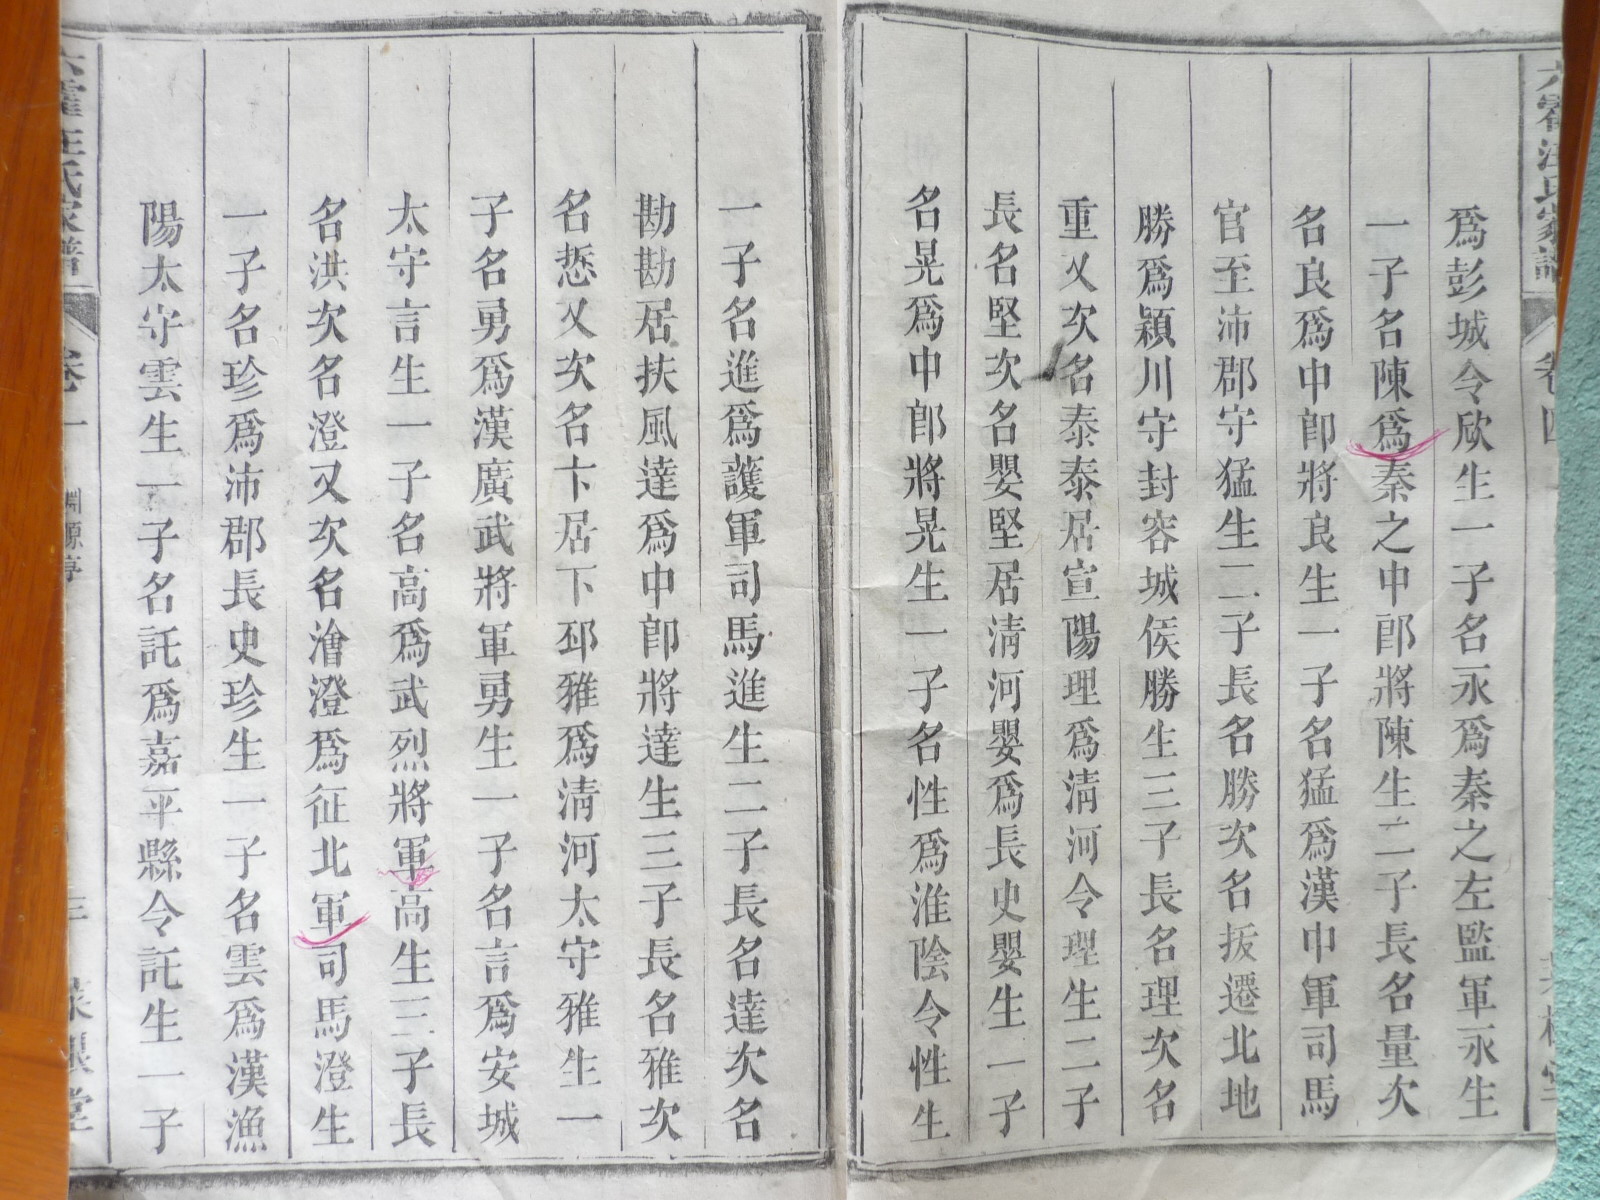 爲彭城令欣生一子名永爲秦之左監軍永生
一子名陳爲秦之中郎將陳生二子長名量次
名良爲中郎將良生一子名猛爲漢中軍司馬
官至沛郡守猛生二子長名勝次名扳遷北地
勝爲潁川守封容城侯勝生三子長名理次名
重又次名泰泰居宣陽理爲清河令理生二子
長名堅次名嬰堅居清河嬰爲長史嬰生一子
名晃爲中郎將晃生一子名性爲淮陰令性生
一子名進爲護軍司馬進生二子長名達次名
勘勘居扶風達爲中郎將達生三子長名雅次
名惁又次名卞居下邳雅爲清河太守雅生一
子名勇爲漢廣武將軍勇生一子名言爲安城
太守言生一子名高爲武烈將軍高生三子長
名洪次名澄又次名澮澄爲征北軍司馬澄生
一子名珍爲沛郡長史珍生一子名雲爲漢漁
陽太守雲生一子名託爲嘉平縣令託生一子
氏家譜 卷一 淵源序 三